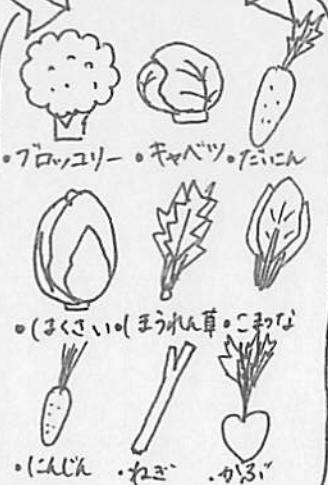 ・ブロッコリー ・キャベツ ・だいこん
・はくさい ・ほうれん草 ・こまつな
・にんじん ・ねぎ ・かぶ